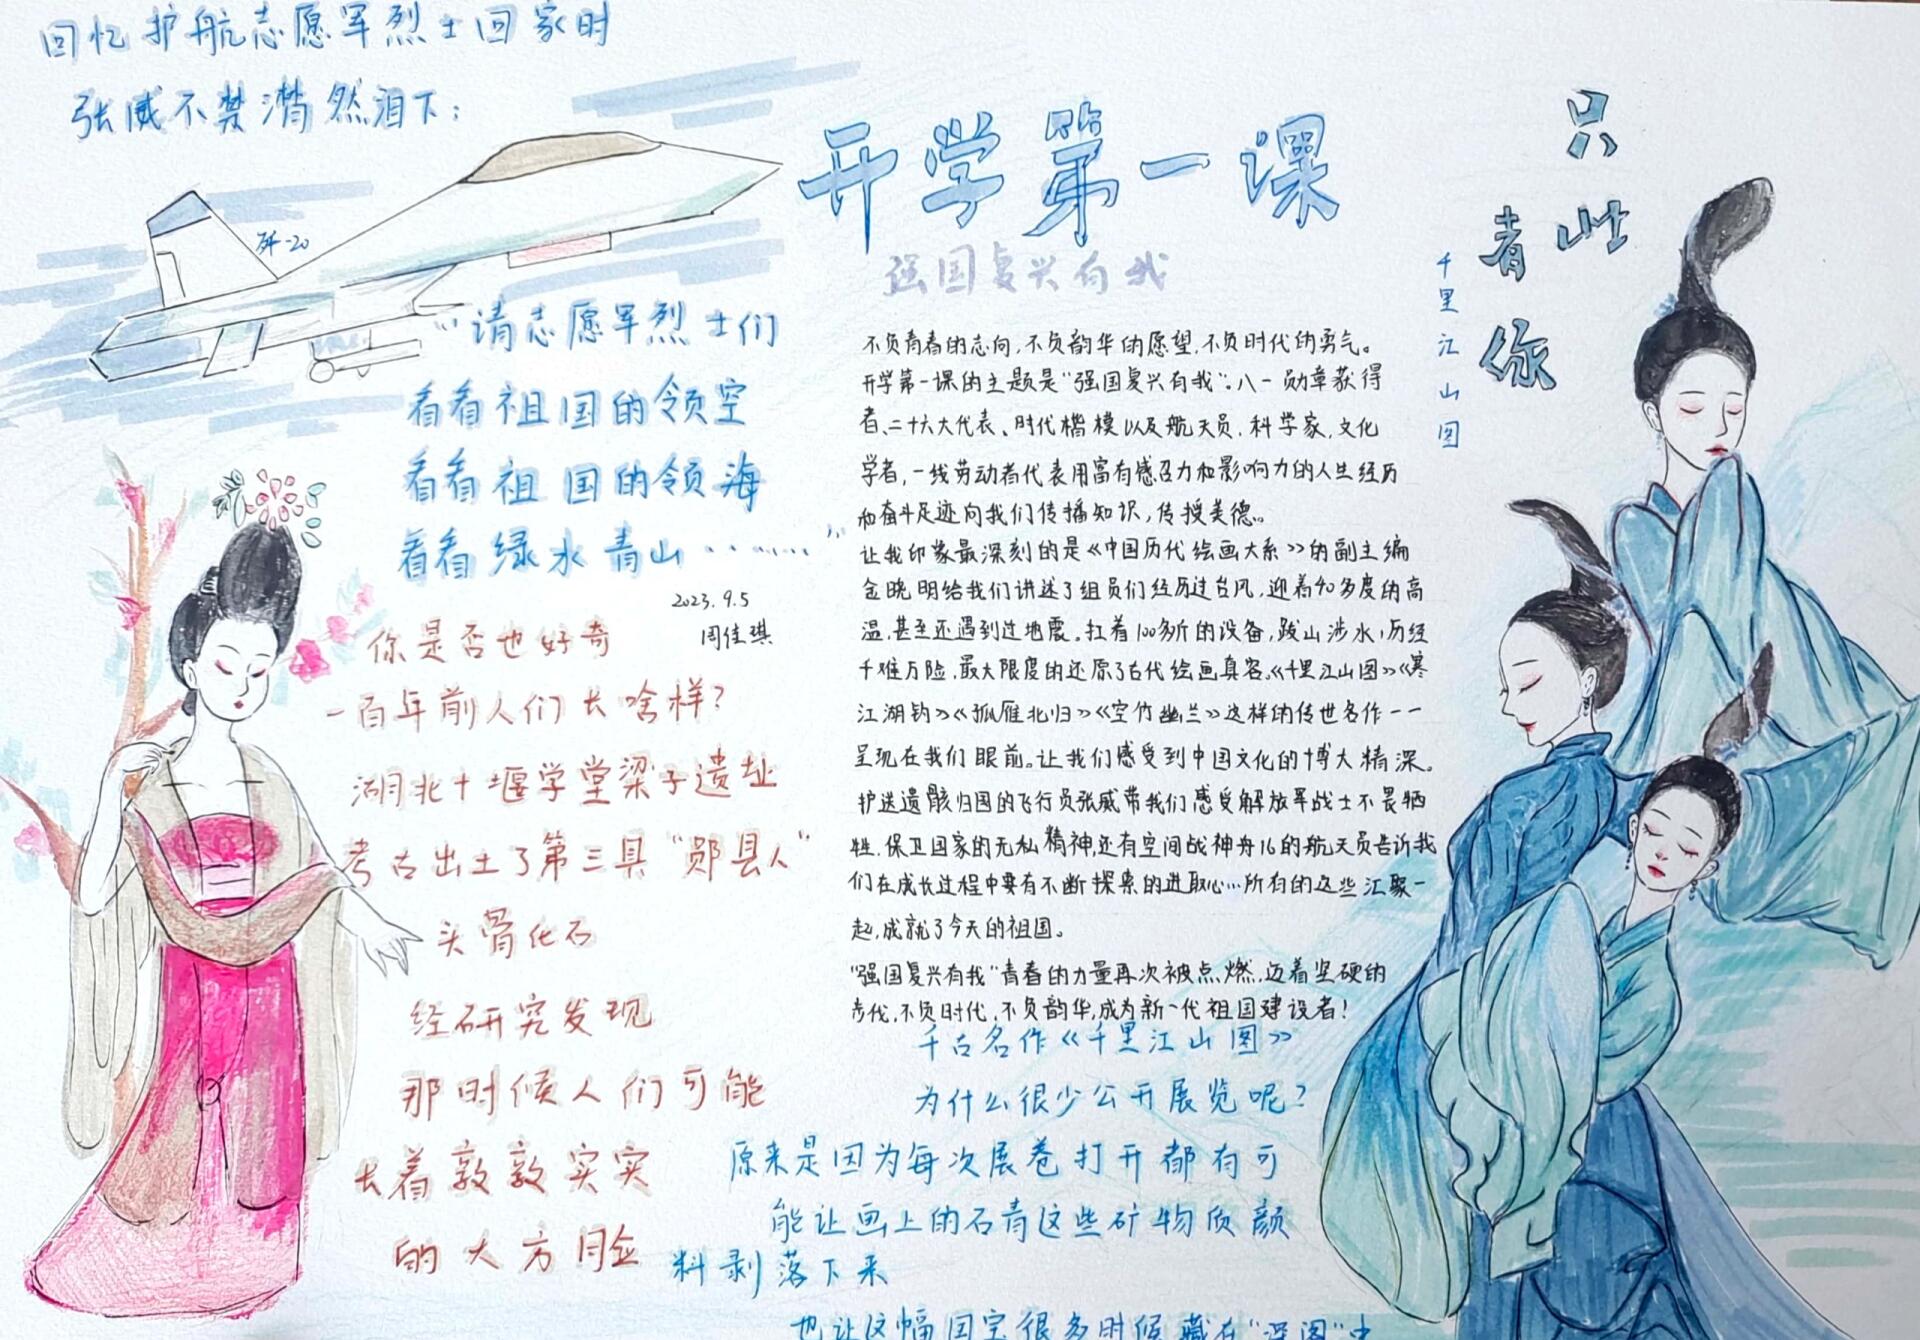 回忆护航志愿军烈士回家时
张威不禁潸然泪下:
歼-20
"请志愿军烈士们
看看祖国的领空
看看祖国的领海
看看绿水青山……"
2023.9.5
周佳琪
你是否也好奇
一百年前人们长啥样?
湖北十堰学堂梁子遗址
考古出土了第三具"郧县人"
头骨化石
经研究发现
那时候人们可能
长着敦敦实实
的大方脸
开学第一课
强国复兴有我
不负青春的志向,不负韵华的愿望,不负时代的勇气。
开学第一课的主题是"强国复兴有我"。八一勋章获得
者、二十六大代表、时代楷模以及航天员,科学家,文化
学者,一线劳动者代表用富有感召力和影响力的人生经历
和奋斗足迹向我们传播知识,传授美德。
让我印象最深刻的是《中国历代绘画大系》的副主编
金晓明给我们讲述了组员们经历过台风,迎着40多度的高
温,甚至还遇到过地震。扛着100多斤的设备,跋山涉水,历经
千难万险,最大限度的还原了古代绘画真容。《千里江山图》《寒
江湖钓》《孤雁北归》《空竹幽兰》这样的传世名作一一
呈现在我们眼前。让我们感受到中国文化的博大精深。
护送遗骸归国的飞行员张威带我们感受解放军战士不畏牺
牲,保卫国家的无私精神,还有空间战神舟16的航天员告诉我
们在成长过程中要有不断探索的进取心…所有的这些汇聚一
起,成就了今天的祖国。
"强国复兴有我"青春的力量再次被点燃,迈着坚硬的
步伐,不负时代,不负韵华,成为新一代祖国建设者!
千古名作《千里江山图》
为什么很少公开展览呢?
原来是因为每次展卷打开都有可
能让画上的石青这些矿物质颜
料剥落下来
也让这幅国宝很多时候藏在"深阁"中
只此
青
你
千里江山图